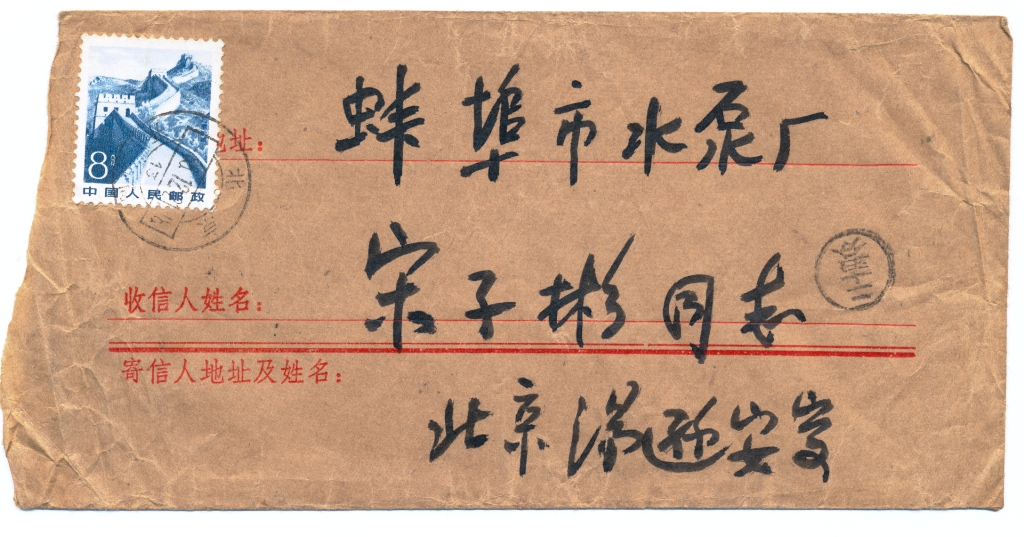 8分
中国人民邮政
地址：
蚌埠市水泵厂
收信人姓名：
宋子彬同志
寄信人地址及姓名：
北京